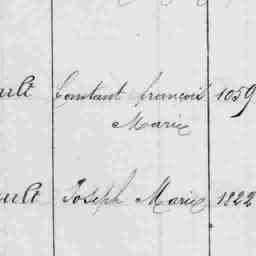 ault Constant françois 1059
Marie
ault Joseph Marie 1822